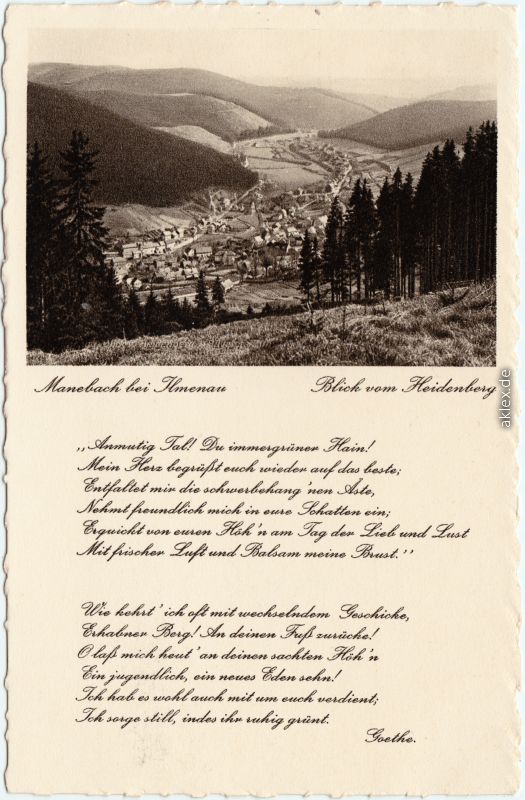 Manebach bei Ilmenau Blick vom Heidenberg
„Anmutig Tal! Du immergrüner Hain!
Mein Herz begrüßt euch wieder auf das beste;
Entfaltet mir die schwerbehang'nen Äste,
Nehmt freundlich mich in eure Schatten ein;
Erquickt von euren Höh'n am Tag der Lieb und Lust
Mit frischer Luft und Balsam meine Brust."
Wie kehrt' ich oft mit wechselndem Geschicke,
Erhabner Berg! An deinen Fuß zurücke!
O laß mich heut' an deinen sachten Höh'n
Ein jugendlich, ein neues Eden sehn!
Ich hab es wohl auch mit um euch verdient;
Ich sorge still, indes ihr ruhig grünt.
Goethe.
© aklex.de